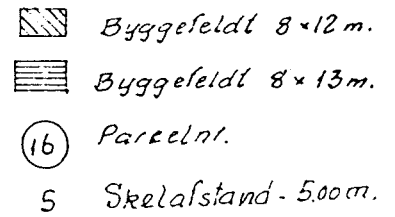 Byggefeldt 8 × 12 m.
Byggefeldt 8 × 13 m.
16 Parcelnr.
5 Skelafstand - 5.00 m.